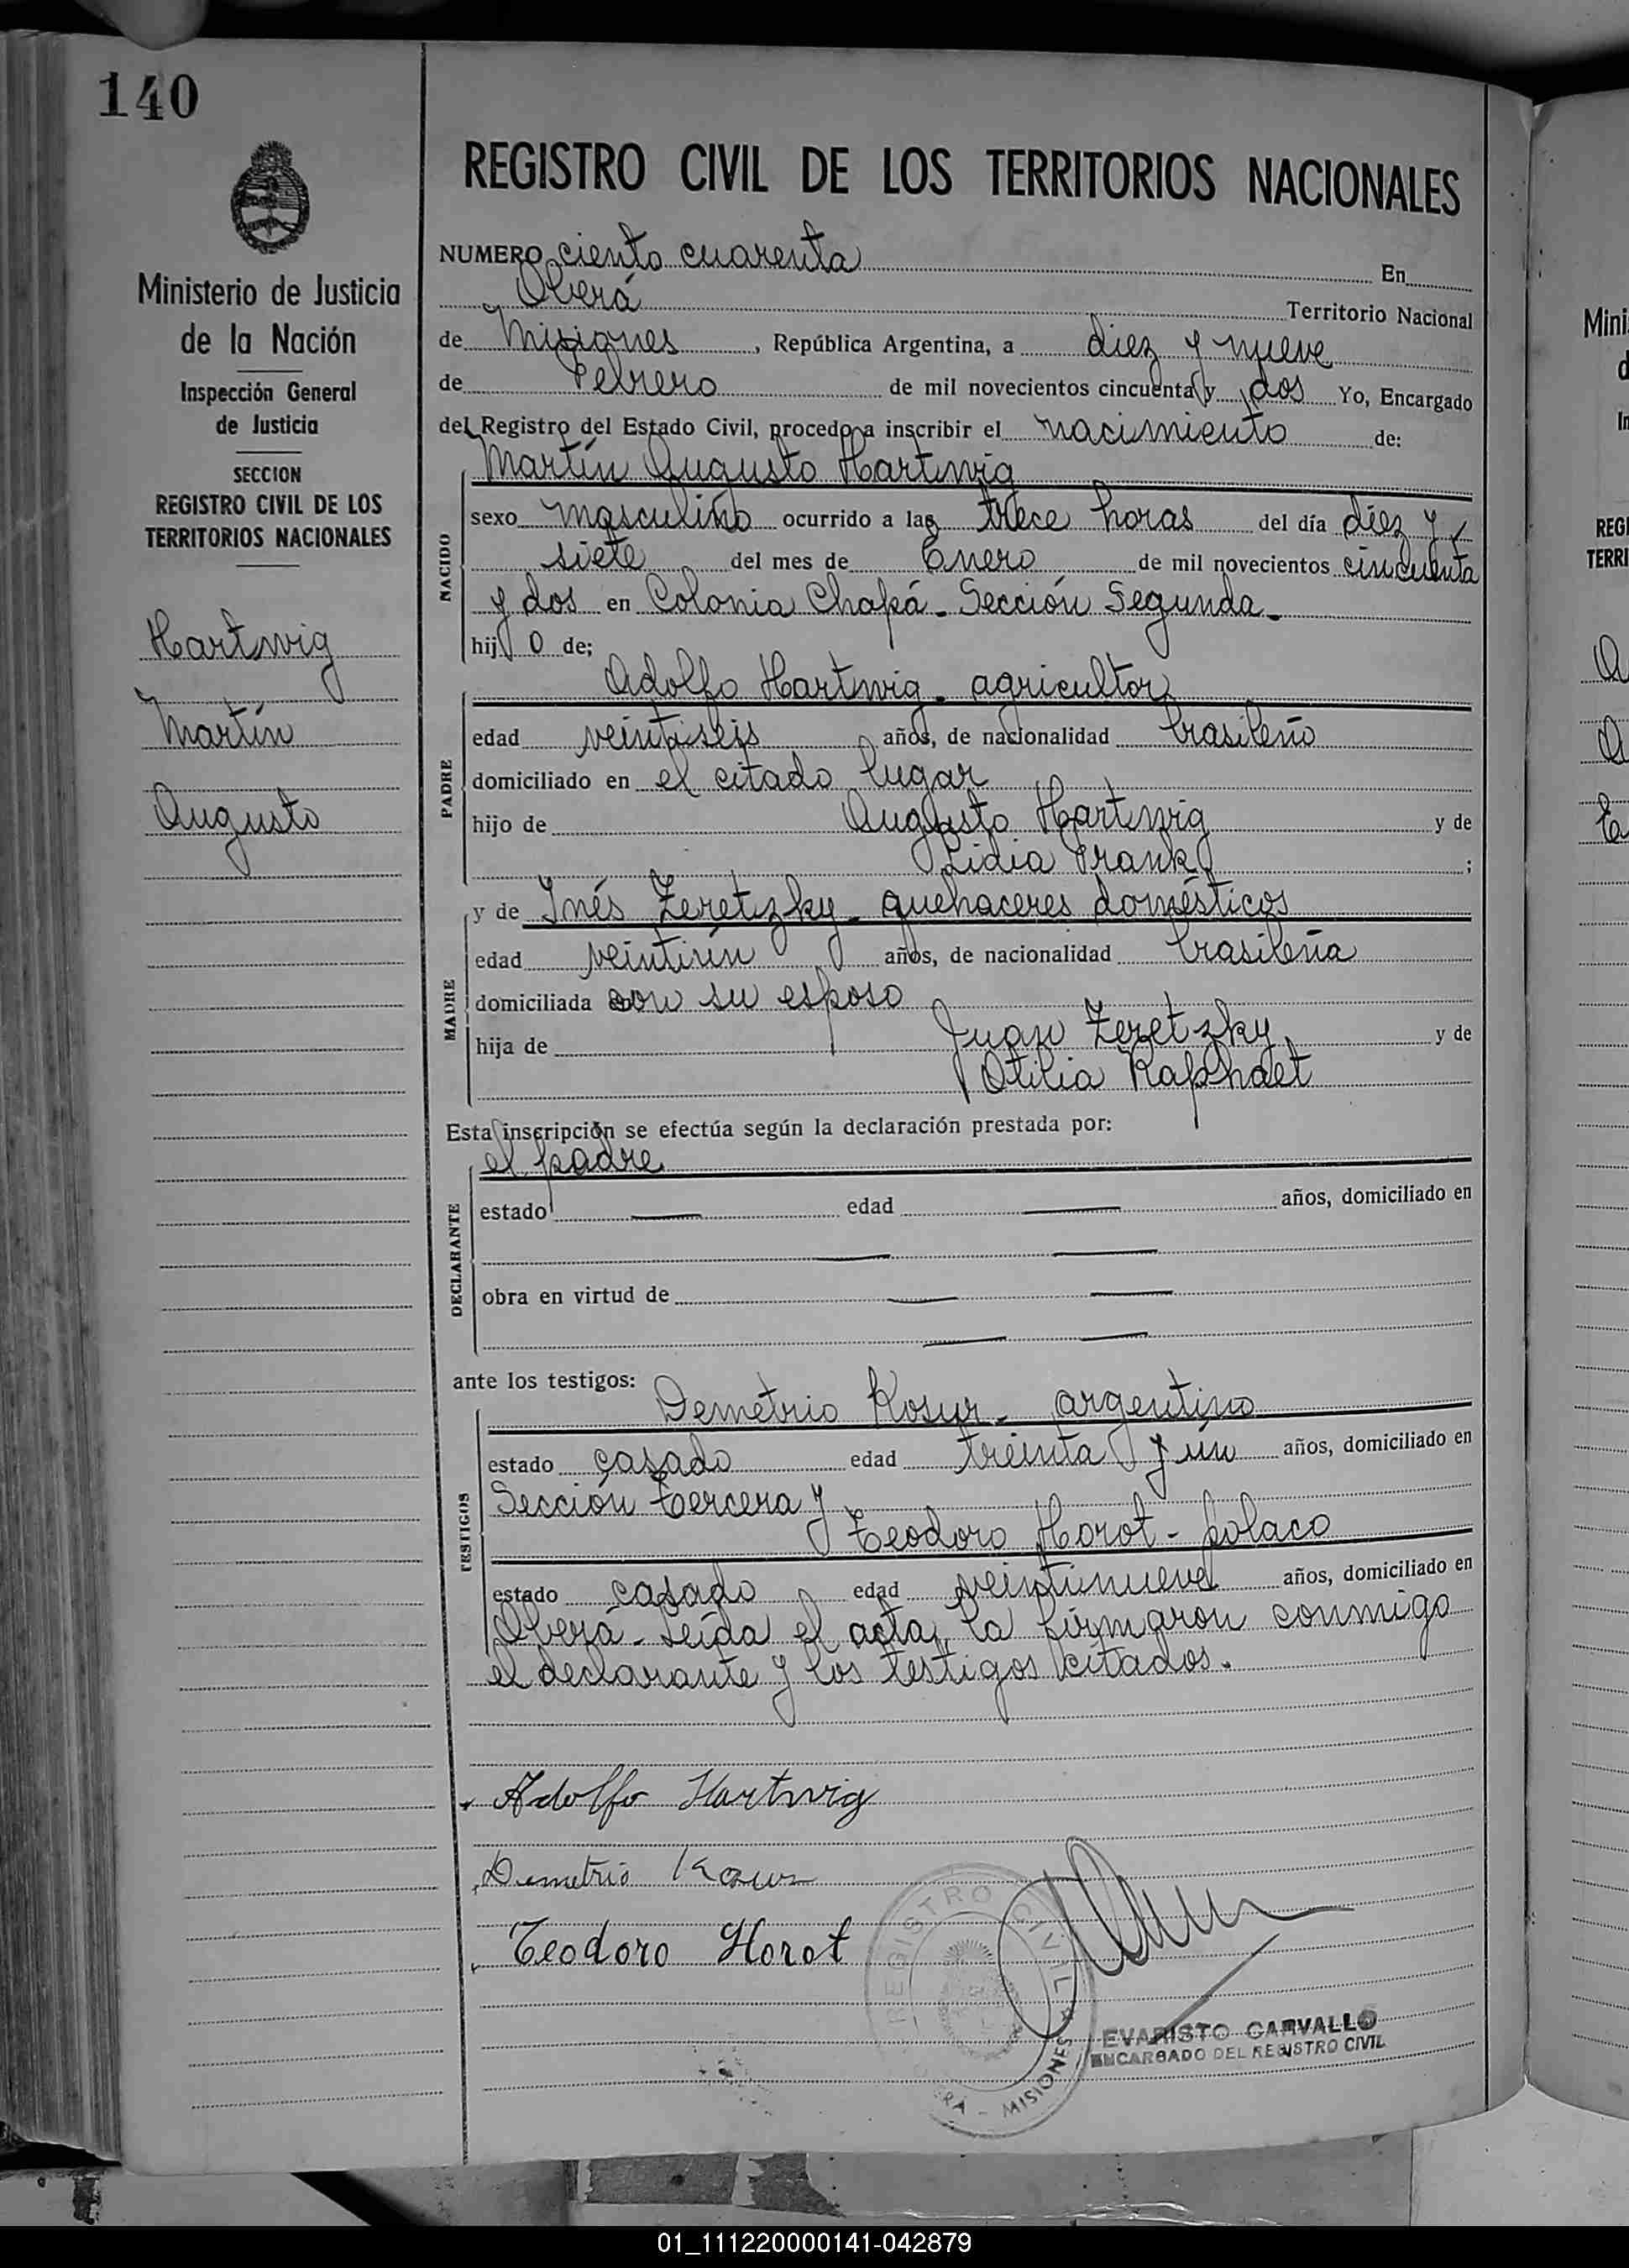 140
REGISTRO CIVIL DE LOS TERRITORIOS NACIONALES
Ministerio de Justicia
de la Nación
Inspección General
de Justicia
SECCION
REGISTRO CIVIL DE LOS
TERRITORIOS NACIONALES
Hartwig
Martín
Augusto
NUMERO ciento cuarenta En
Oberá Territorio Nacional
de Misiones, República Argentina, a diez y nueve
de Febrero de mil novecientos cincuenta y dos Yo, Encargado
del Registro del Estado Civil, procedo a inscribir el nacimiento de:
NACIDO
Martín Augusto Hartwig
sexo masculino ocurrido a las trece horas del día diez y
siete del mes de Enero de mil novecientos cincuenta
y dos en Colonia Chapá - Sección Segunda -
hij o de;
PADRE
Adolfo Hartwig - agricultor
edad veintiseis años, de nacionalidad brasileño
domiciliado en el citado lugar
hijo de Augusto Hartwig y de
Lidia Frank ;
MADRE
y de Inés Zeretzky - quehaceres domésticos
edad veintiún años, de nacionalidad brasileña
domiciliada con su esposo
hija de Juan Zeretzky y de
Otilia Raphaet
Esta inscripción se efectúa según la declaración prestada por:
DECLARANTE
el padre
estado — edad — años, domiciliado en
— —
obra en virtud de — —
— —
ante los testigos:
TESTIGOS
Demetrio Kosur - argentino
estado casado edad treinta y ún años, domiciliado en
Sección tercera y
Teodoro Horot - polaco
estado casado edad veintinueve años, domiciliado en
Oberá - Leída el acta, la firmaron conmigo
el declarante y los testigos citados.
Adolfo Hartwig
Demetrio Kosur
Teodoro Horot
REGISTRO CIVIL
MISIONES
EVARISTO CARVALLO
ENCARGADO DEL REGISTRO CIVIL
01_111220000141-042879